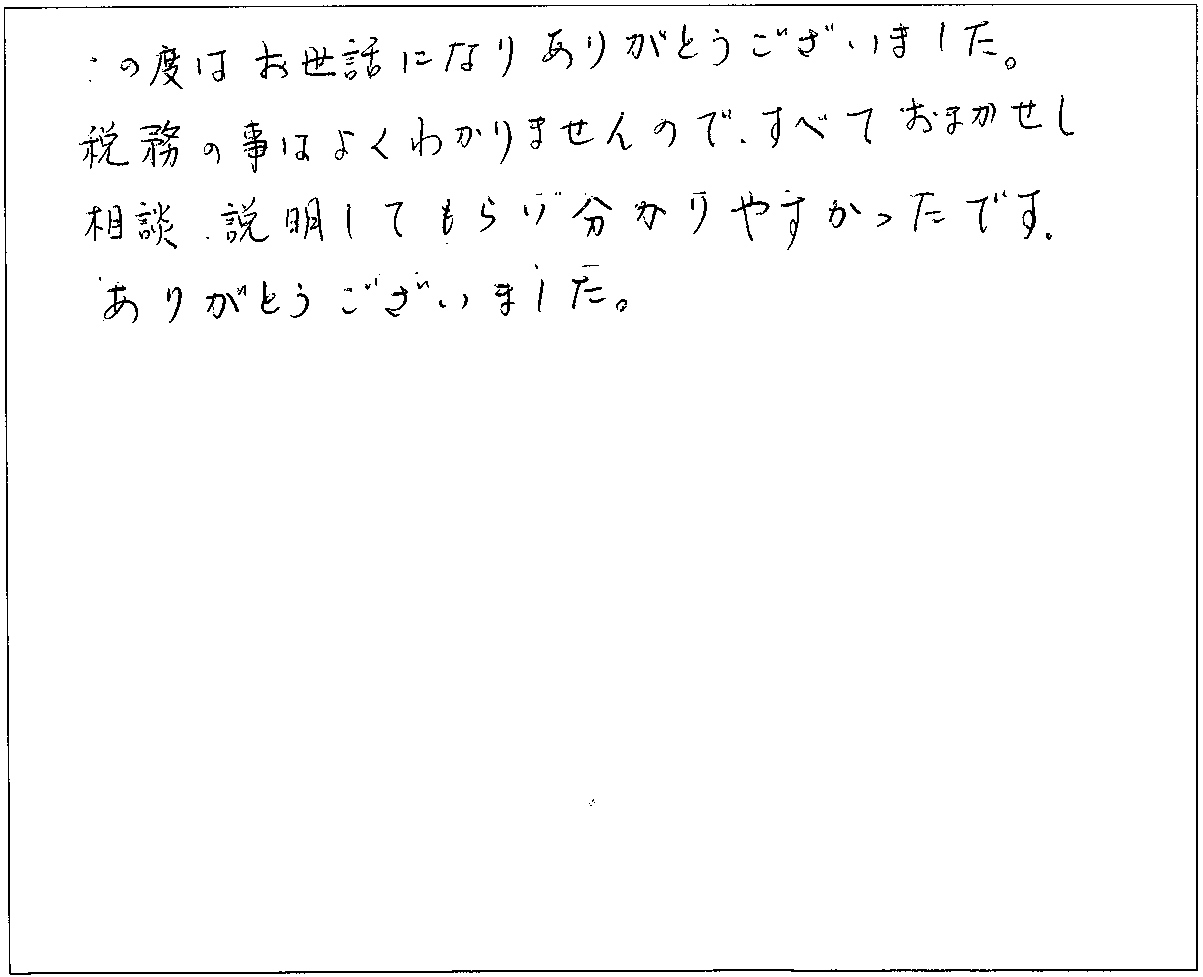 この度はお世話になりありがとうございました。
税務の事はよくわかりませんので、すべておまかせし
相談、説明してもらい分かりやすかったです。
ありがとうございました。